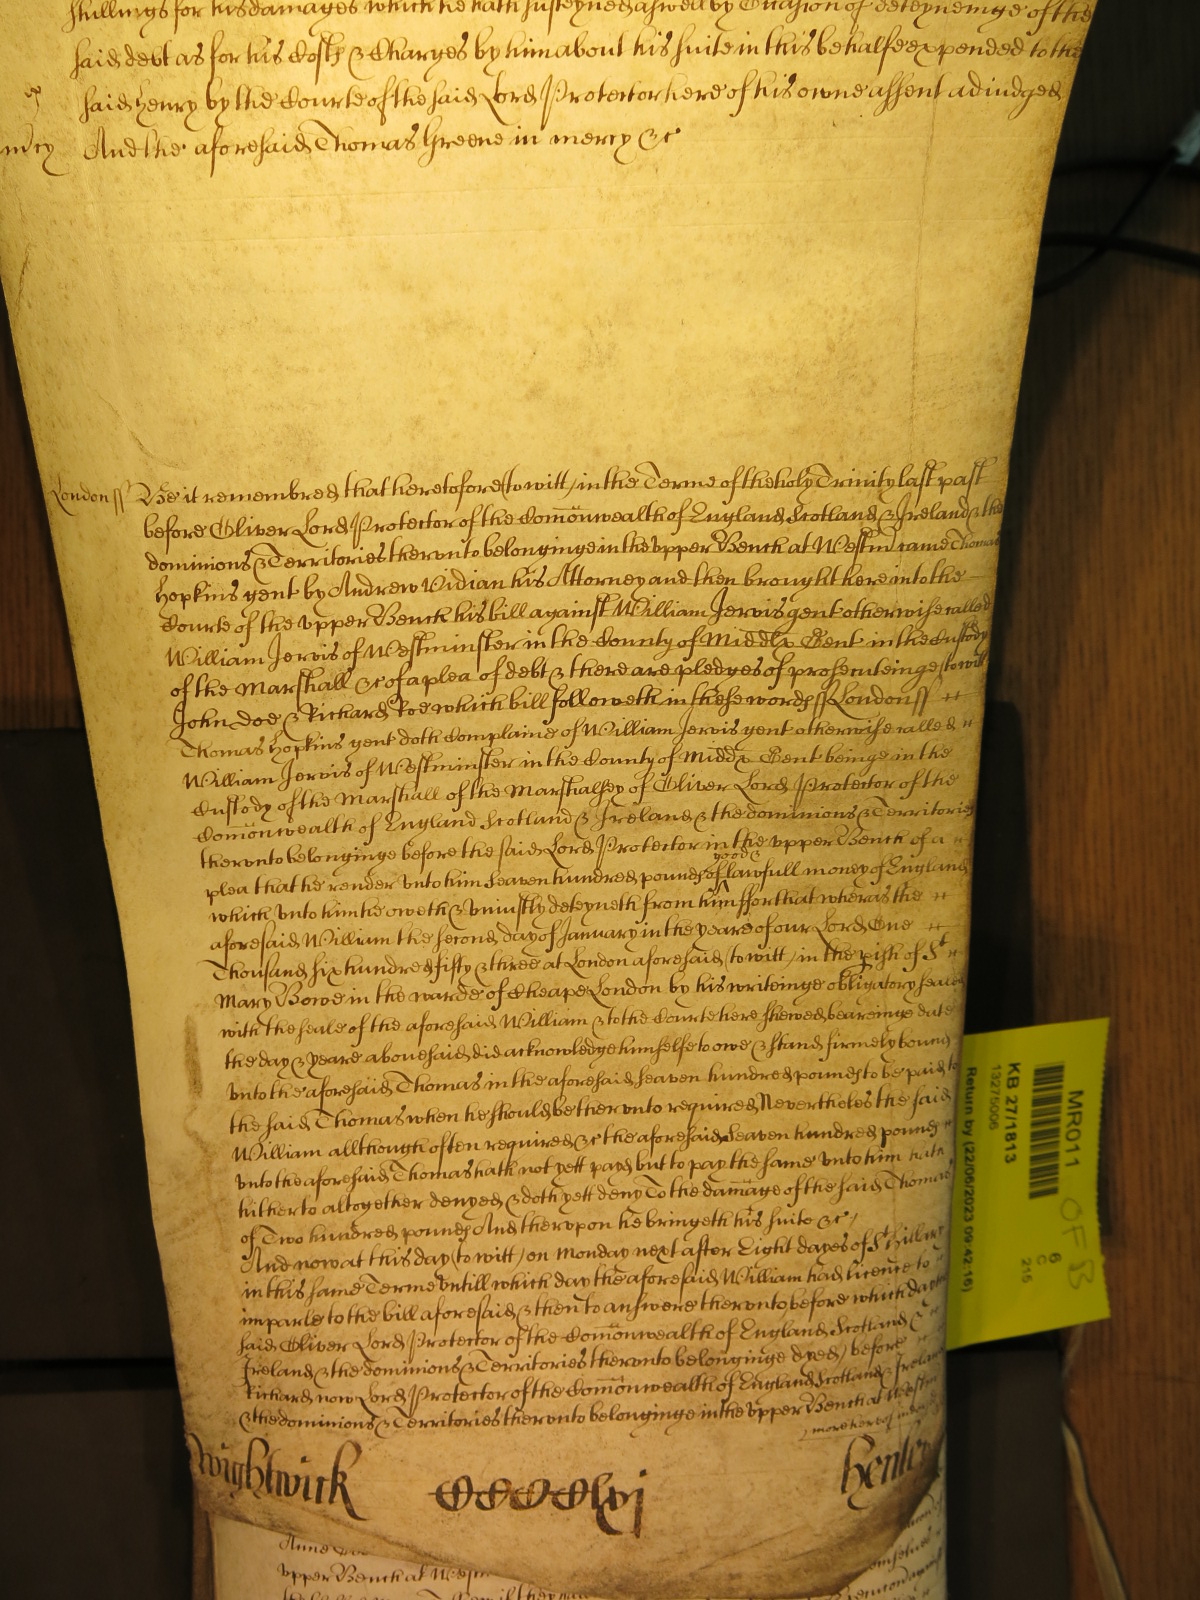 shillings for his damages which he hath susteyned aswell by Occasion of deteyneinge of the
said debt as for his Costs & Charges by him about his suite in this behalfe expended to the
said Henry by the Courte of the said Lord Protector here of his owne assent adiudged
And the aforesaid Thomas Greene in mercy &c
mcy
London ss Be it remembred that heretofore (to witt) in the Terme of the holy Trinity last past
before Oliver Lord Protector of the Comonwealth of England Scotland & Ireland & the
dominions & Territories therunto belonginge in the upper Bench at Westm came Thomas
Hopkins gent by Andrew Vidian his Attorney and then brought here into the
Courte of the upper Bench his bill against William Jervis gent otherwise called
William Jervis of Westminster in the County of Middx Gent in the Custody
of the Marshall &c of a plea of debt & there are pledges of prosecuteinge (to witt)
John Doe & Richard Roe which bill followeth in these words ss London ss
Thomas Hopkins gent doth Complaine of William Jervis gent otherwise called
William Jervis of Westminster in the County of Middx Gent beinge in the
Custody of the Marshall of the Marshalsey of Oliver Lord Protector of the
Comonwealth of England Scotland & Ireland & the dominions & Territories
therunto belonginge before the said Lord Protector in the upper Bench of a
plea that he render unto him Seaven hundred pounds of good & lawfull money of England
which unto him he oweth & uniustly deteyneth from him ffor that wheras the
aforesaid William the second day of January in the yeare of our Lord One
Thousand six hundred fifty & three at London aforesaid (to witt) in the pish of St
Mary Bowe in the warde of Cheape London by his writeinge obligatory sealed
with the seale of the aforesaid William & to the Courte here shewed beareinge date
the day & yeare abovesaid did acknowledge himselfe to owe & stand firmely bound
unto the aforesaid Thomas in the aforesaid seaven hundred pounds to be paid to
the said Thomas when he should be therunto required Nevertheles the said
William allthough often required &c the aforesaid Seaven hundred pounds
unto the aforesaid Thomas hath not yett payd but to pay the same unto him hath
hitherto altogether denyed & doth yett deny To the damage of the said Thomas
of Two hundred pounds And therupon he bringeth his suite &c
And now at this day (to witt) on Monday next after Eight dayes of St Hillary
in this same Terme untill which day the aforesaid William had licence to
imparle to the bill aforesaid & then to answere therunto before which day the
said Oliver Lord Protector of the Comonwealth of England Scotland &
Ireland & the dominions & Territories therunto belonginge dyed) before
Richard now Lord Protector of the Comonwealth of England Scotland & Ireland
& the dominions & Territories therunto belonginge in the upper Bench at Westm
more hereof in
Wightwick CCCClvj Henley
upper Bench at Westm
MR011
KB 27/1813
13275006
Return by (22/06/2023 09:42:16)
6
C
215
OF B